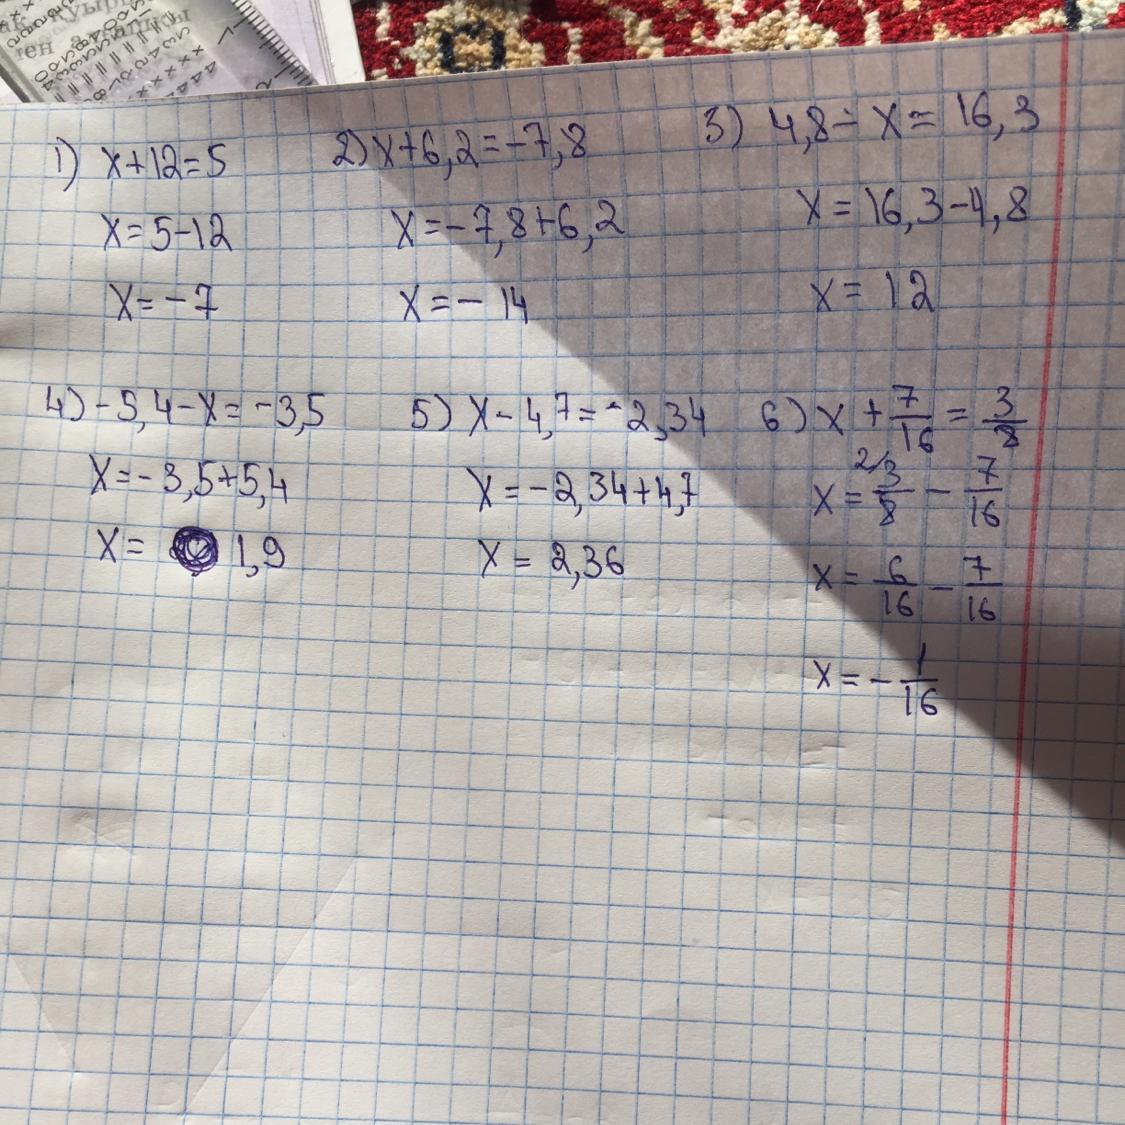 қуыры
тен
1) x+12=5
x=5-12
x=-7
2) x+6,2=-7,8
x=-7,8+6,2
x=-14
3) 4,8-x=16,3
x=16,3-4,8
x=12
4) -5,4-x=-3,5
x=-3,5+5,4
x= 1,9
5) x-4,7=-2,34
x=-2,34+4,7
x=2,36
6) x+7/16=3/8
x=2/3/8-7/16
x=6/16-7/16
x=-1/16